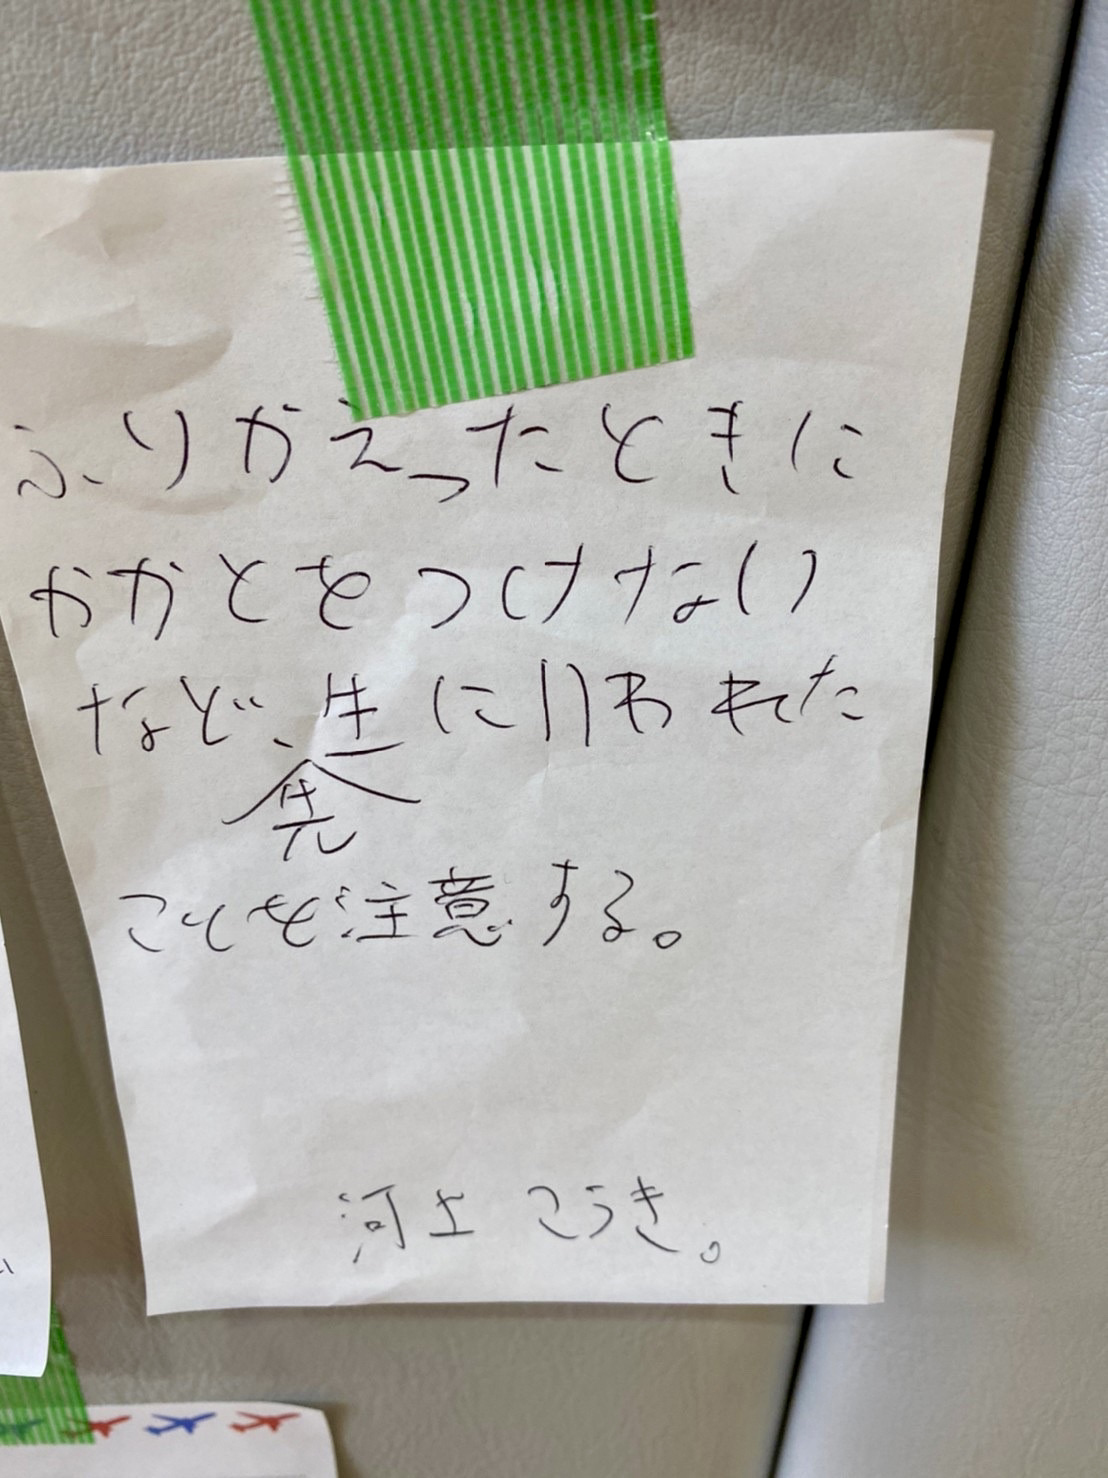 ふりかえったときに
かかとをつけない
など、先生にいわれた
ことを注意する。
河上 こうき。